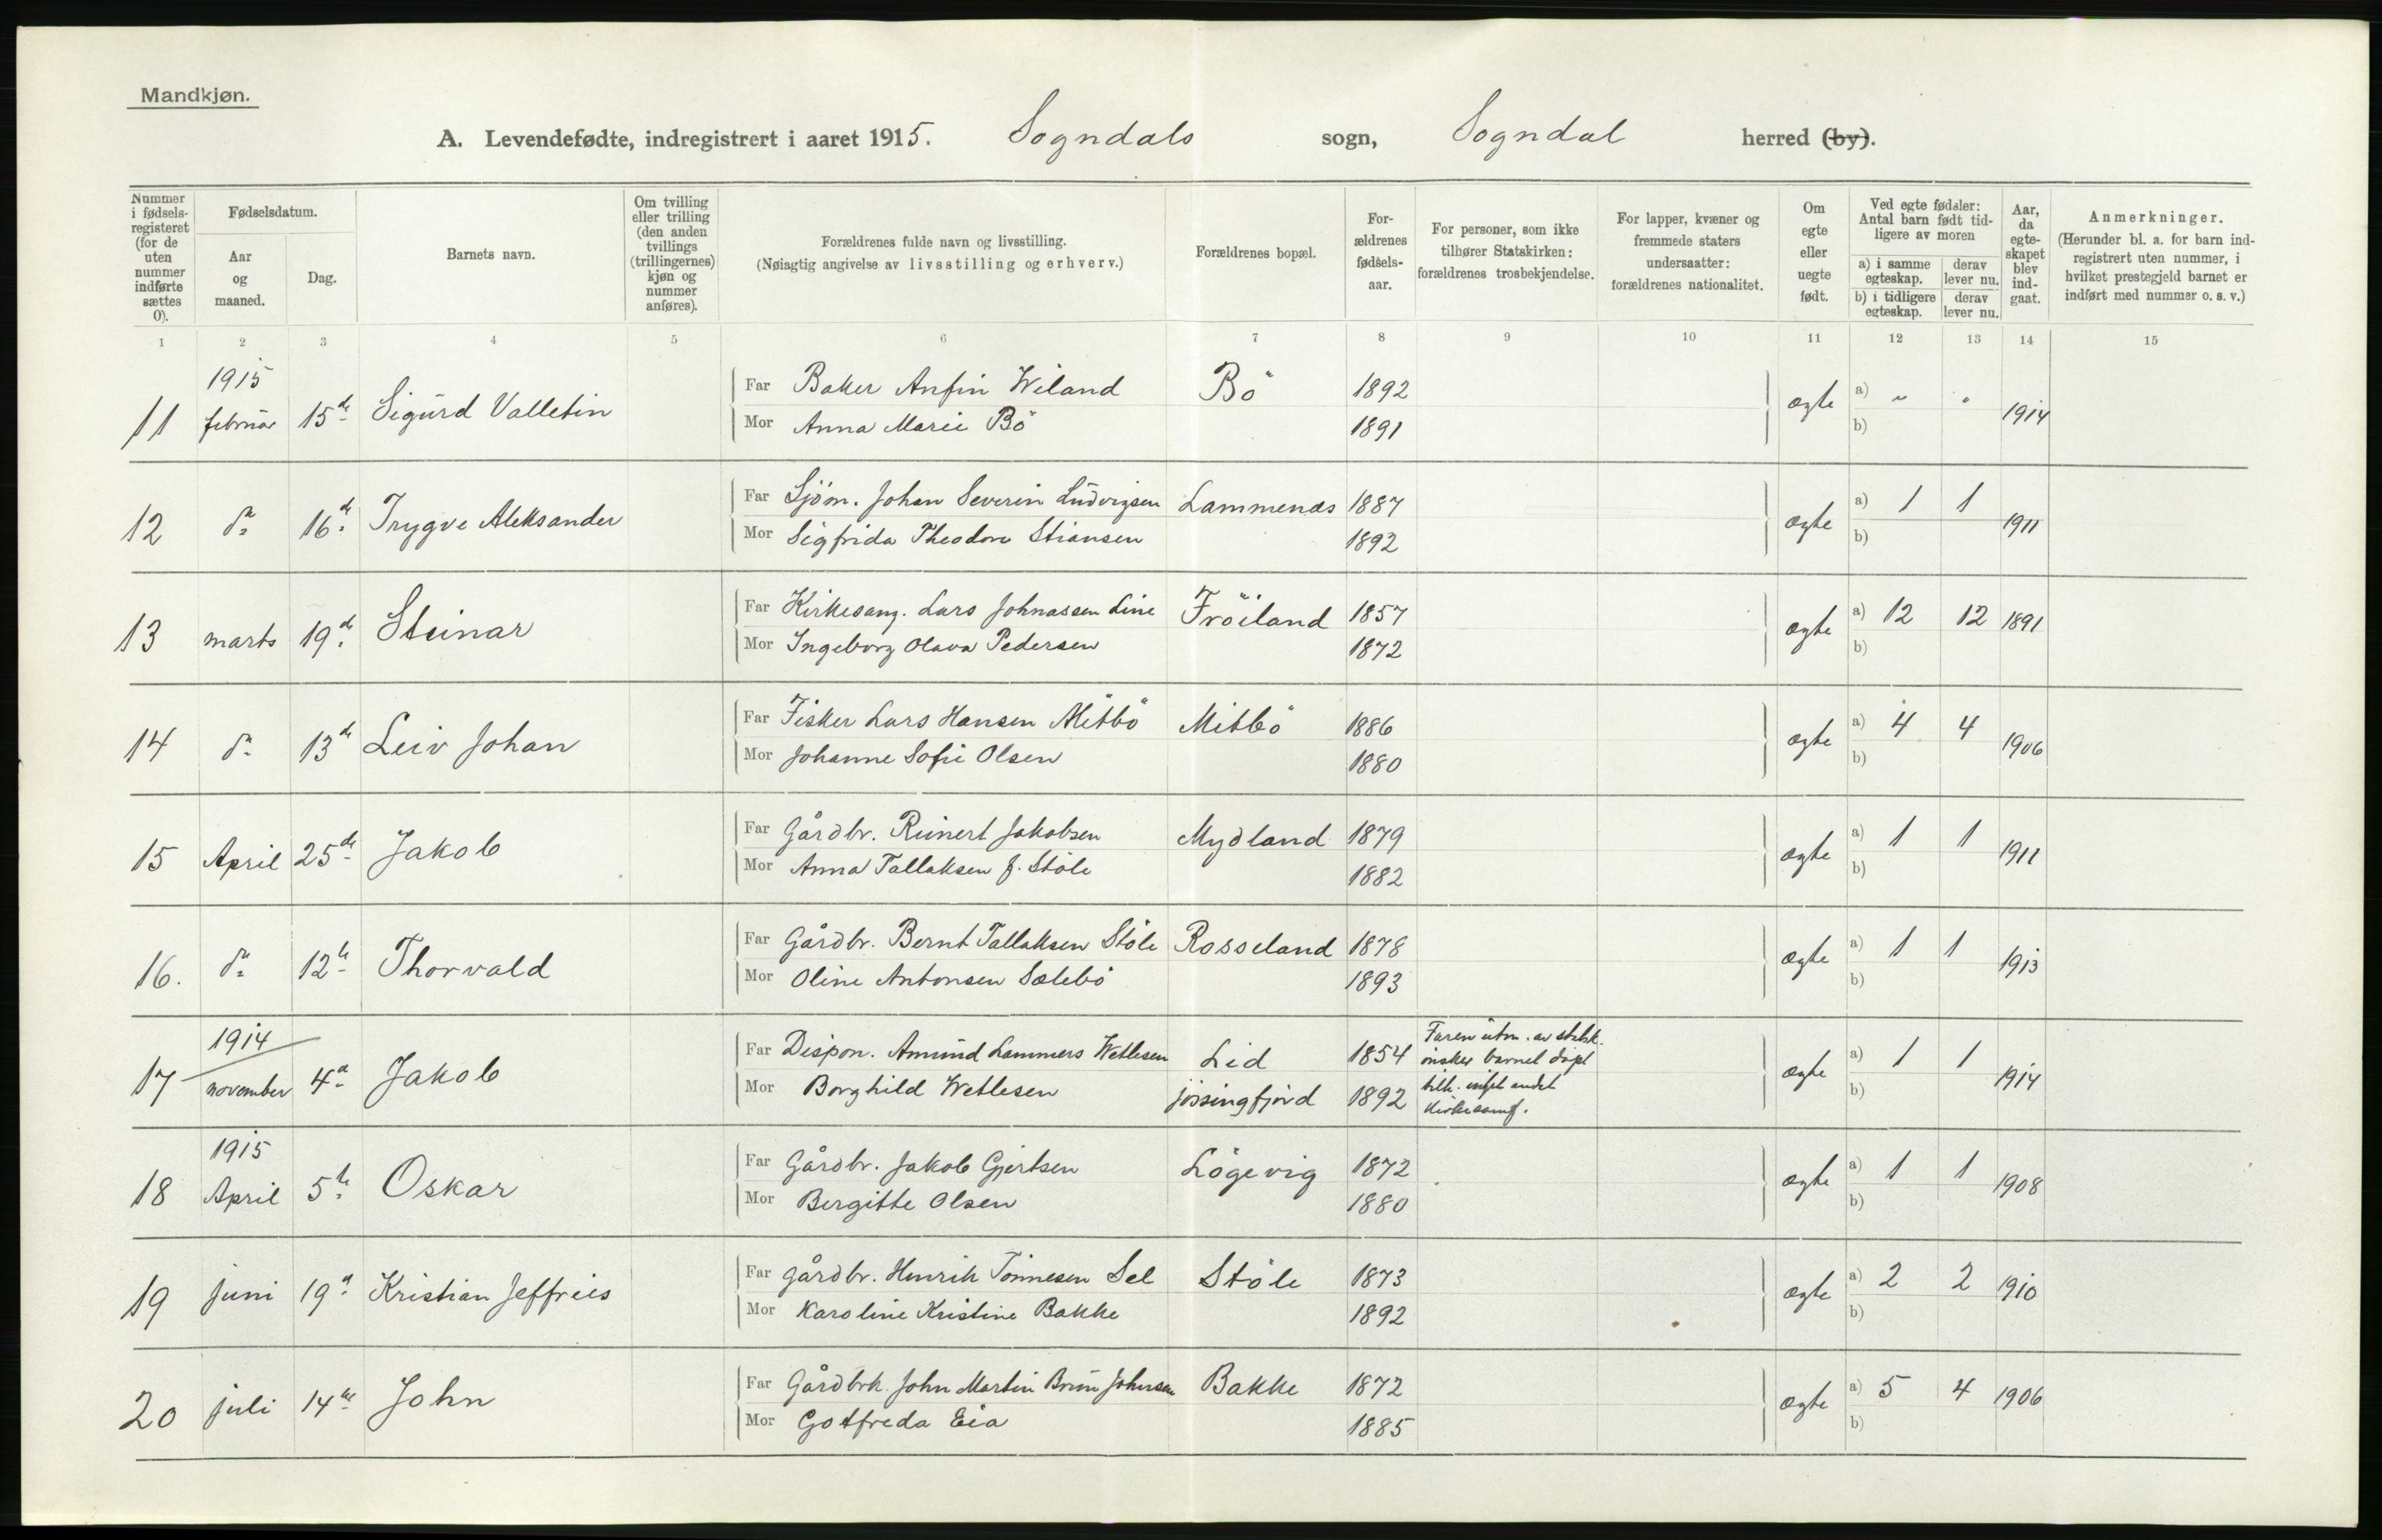 Mandkjøn.
A. Levendefødte, indregistrert i aaret 1915. Sogndals sogn, Sogndal herred (by).
Nummer i fødsels-registeret (for de uten nummer indførte sættes 0).
Fødselsdatum.
Aar og maaned.
Dag.
Barnets navn.
Om tvilling eller trilling (den anden tvillings (trillingernes) kjøn og nummer anføres).
Forældrenes fulde navn og livsstilling.
(Nøiagtig angivelse av livsstilling og erhverv.)
Forældrenes bopæl.
For-ældrenes fødsels-aar.
For personer, som ikke tilhører Statskirken: forældrenes trosbekjendelse.
For lapper, kvæner og fremmede staters undersaatter: forældrenes nationalitet.
Om egte eller uegte født.
Ved egte fødsler: Antal barn født tid-ligere av moren
a) i samme egteskap.
derav lever nu.
b) i tidligere egteskap.
derav lever nu.
Aar, da egte-skapet blev ind-gaat.
Anmerkninger.
(Herunder bl. a. for barn ind-registrert uten nummer, i hvilket prestegjeld barnet er indført med nummer o. s. v.)
1 2 3 4 5 6 7 8 9 10 11 12 13 14 15
1915
11 februar 15de Sigurd Valletin Far Baker Anfin Weland Bö 1892 ægte a) " " 1914
Mor Anna Marie Bö 1891 b)
12 do 16de Trygve Aleksander Far Sjöm. Johan Severin Ludvigsen Lammenæs 1887 ægte a) 1 1 1911
Mor Sigfrida Theodora Stiansen 1892 b)
13 marts 19de Steinar Far Kirkesang. Lars Johnassen Line Fröiland 1857 ægte a) 12 12 1891
Mor Ingeborg Olava Pedersen 1872 b)
14 do 13de Leiv Johan Far Fisker Lars Hansen Mitbö Mitbö 1886 ægte a) 4 4 1906
Mor Johanne Sofie Olsen 1880 b)
15 April 25de Jakob Far Gårdbr. Reinert Jakobsen Mydland 1879 ægte a) 1 1 1911
Mor Anna Tallaksen f. Stöle 1882 b)
16. do 12te Thorvald Far Gårdbr. Bernt Tallaksen Stöle Rosseland 1878 ægte a) 1 1 1913
Mor Oline Antonsen Sælebö 1893 b)
1914
17 november 4de Jakob Far Dispon. Amund Lammers Wetlesen Lid 1854 Faren utm. av statsk. önsker barnet döpt ægte a) 1 1 1914
Mor Borghild Wetlesen jössingfjord 1892 tilh. intet andet kirkesamf. b)
1915
18 April 5te Oskar Far Gårdbr. Jakob Gjertsen Lögevig 1872 ægte a) 1 1 1908
Mor Bergitte Olsen 1880 b)
19 juni 19de Kristian Jeffreis Far Gårdbr. Henrik Tönnesen Sel Stöle 1873 ægte a) 2 2 1910
Mor Karoline Kristine Bakke 1892 b)
20 juli 14de John Far Gårdbrk. John Martin Brun Johnsen Bakke 1872 ægte a) 5 4 1906
Mor Gotfreda Eia 1885 b)